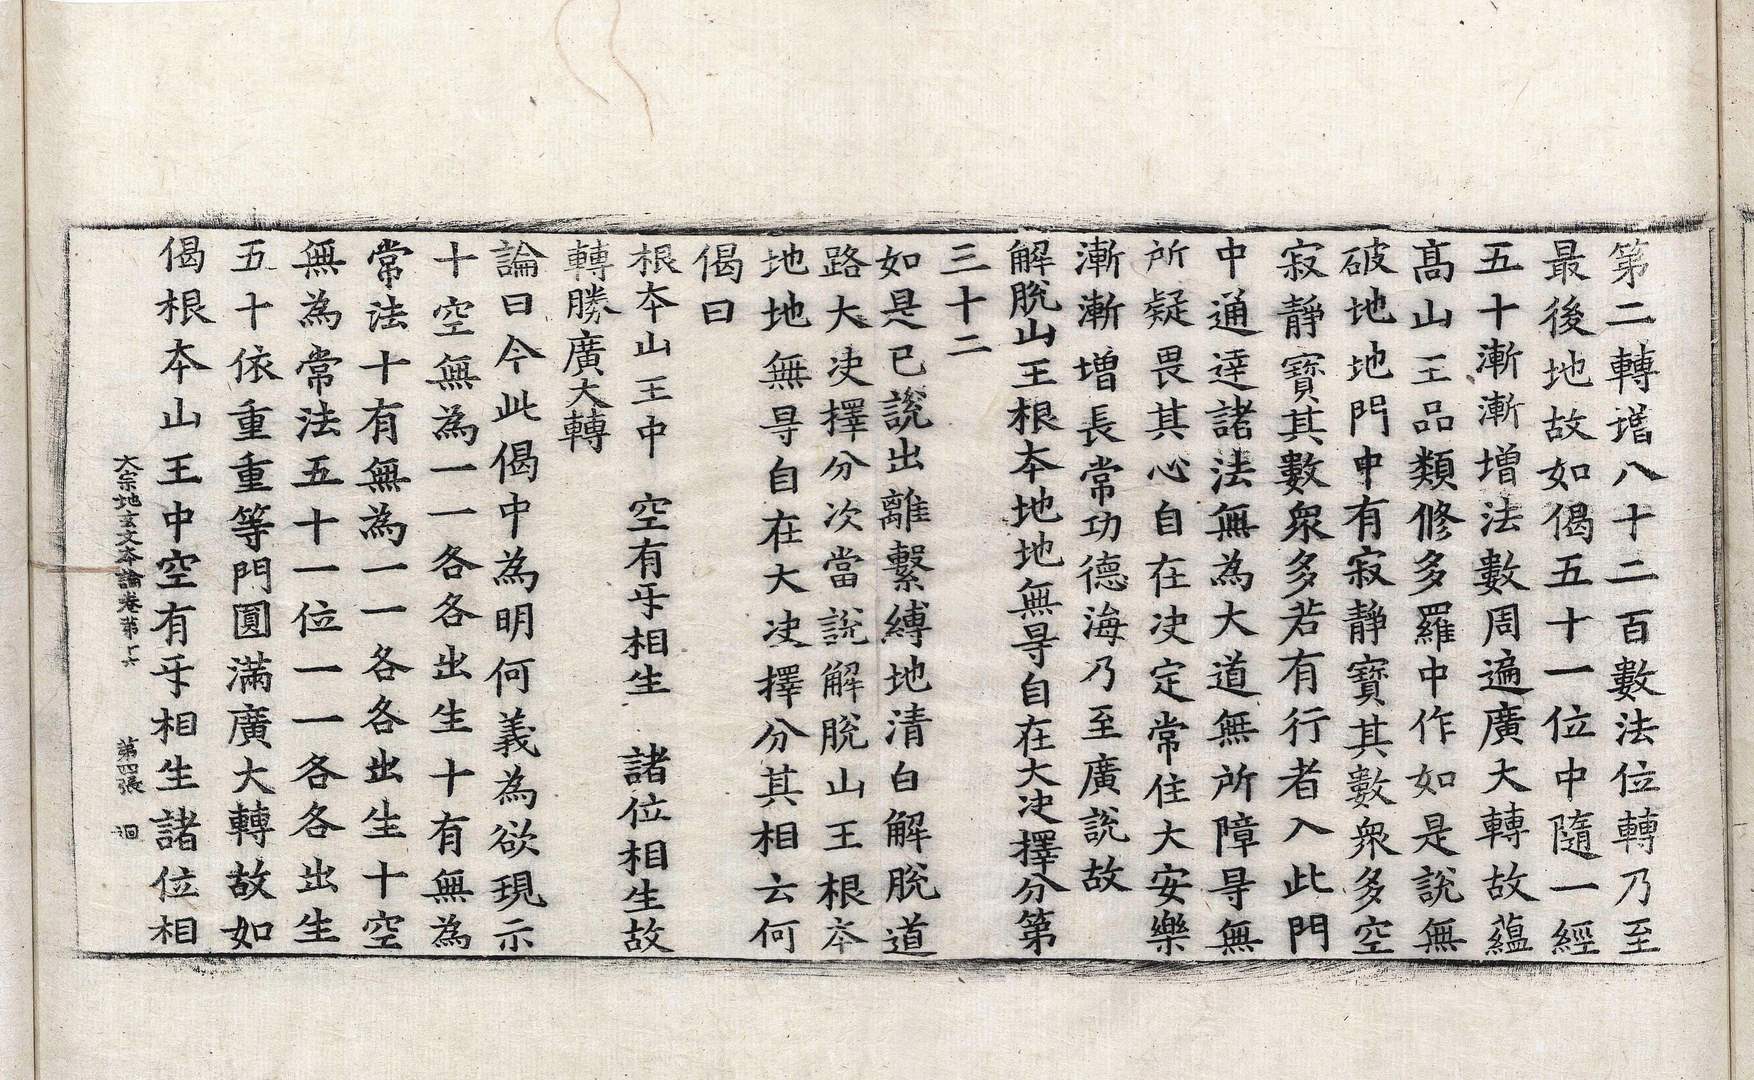 第二轉增八十二百數法位轉乃至
最後地故如偈五十一位中隨一經
五十漸漸增法數周遍廣大轉故蘊
髙山王品類修多羅中作如是說無
破地地門中有寂靜寶其數衆多空
寂靜寶其數衆多若有行者入此門
中通達諸法無為大道無所障㝵無
所疑畏其心自在决定常住大安樂
漸漸增長常功德海乃至廣說故
解脫山王根夲地地無㝵自在大决擇分第
三十二
如是已說出離繫縛地清白解脫道
路大决擇分次當說解脫山王根夲
地地無㝵自在大决擇分其相云何
偈曰
根夲山王中　空有㸦相生　諸位相生故
轉勝廣大轉
論曰今此偈中為明何義為欲現示
十空無為一一各各出生十有無為
常法十有無為一一各各出生十空
無為常法五十一位一一各各出生
五十依重重等門圓滿廣大轉故如
大宗地玄文夲論卷第十六　第四張　迴
偈根夲山王中空有㸦相生諸位相